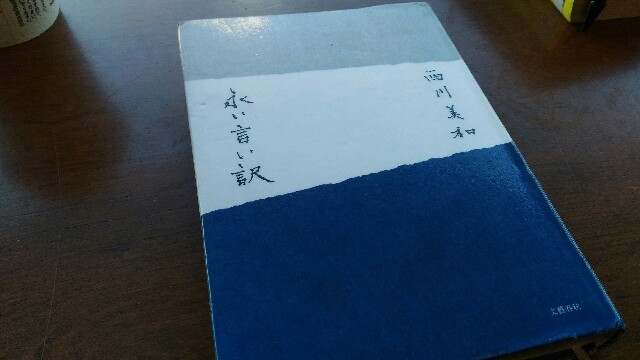 永い言い訳
西川美和
文藝春秋